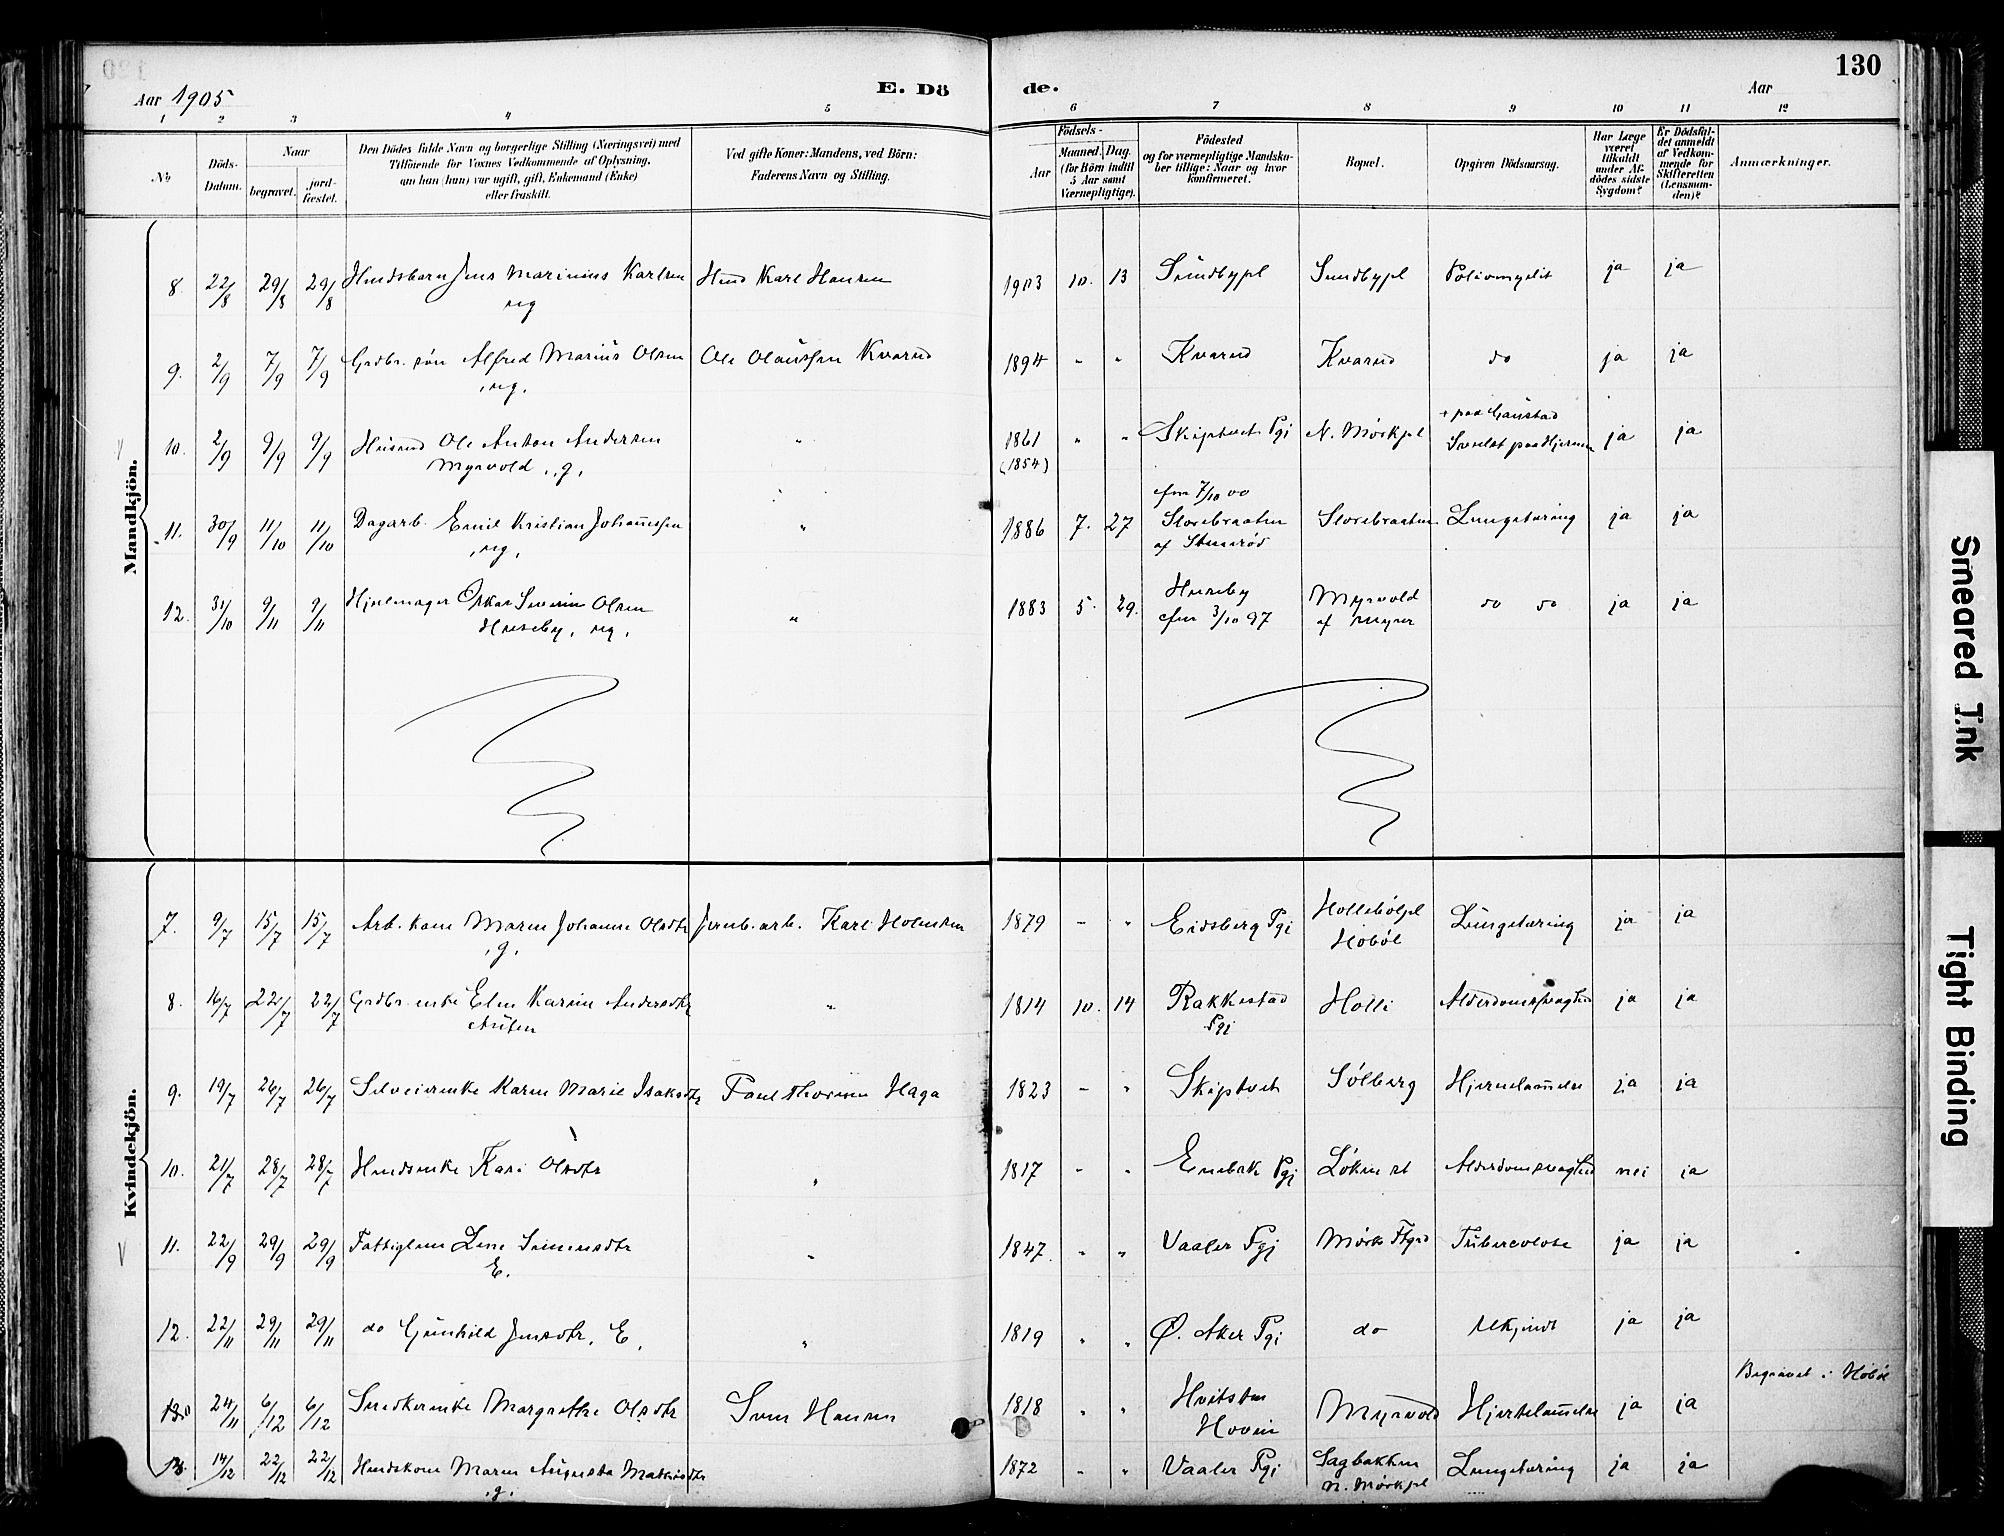 130
Aar 1905
E. Dö
de.
Aar
1 2 3 4 5 6 7 8 9 10 11 12
No
Döds-Datum.
Naar
begravet.
jord-fæstet.
Den Dödes fulde Navn og borgerlige Stilling (Næringsvei) med
Tilföiende for Voxnes Vedkommende af Oplysning,
om han (hun) var ugift, gift, Enkemand (Enke)
eller fraskilt.
Ved gifte Koner: Mandens, ved Börn:
Faderens Navn og Stilling.
Födsels-
Aar
Maaned. Dag.
(for Börn indtil
5 Aar samt
Værnepligtige).
Födested
og for værnepligtige Mandska-
ber tillige: Naar og hvor
konfirmeret.
Bopæl.
Opgiven Dödsaarsag.
Har Læge
været
tilkaldt
under Af-
dödes sidste
Sygdom?
Er Dödsfal-
det anmeldt
af Vedkom-
mende for
Skifteretten
(Lensman-
den)?
Anmærkninger.
Mandkjön.
8. 22/8 29/8 29/8 Husmdsbarn Jens Marinius Karlsen Husmd Karl Hansen 1903 10. 13 Sundbypl Sundbypl Poliomyelit ja ja
ug
9. 2/9 7/9 7/9 Grdbr. søn Alfred Marius Olsen Ole Olaussen Kvarud 1894 " " Kvarud Kvarud do ja ja
, ug,
+ paa Gaustad
10. 2/9 9/9 9/9 Husmd Ole Anton Andersen " 1861 " " Skiptvet Pgj N. Mörkpl paa Hjernen ja ja
Myrvold , g, (1854)
cfm 7/10 00
11. 30/9 11/10 11/10 Dagarb. Emil Kristian Johannessen " 1886 7. 27 Storebraaten Storebraaten Lungetæring ja ja
, ug, af
12. 31/10 9/11 9/11 Hjulmager Oskar Severin Olsen " 1883 5. 29. Huseby Myrvold do do ja ja
Huseby, ug, cfm 3/10 97 af Myrer
Kvindekjön.
7. 9/7 15/7 15/7 Arb. kone Maren Johanne Olsdtr Jernb. arb. Karl Holmsen 1879 - " Eidsberg Pgj Hollebölpl Lungetæring ja ja
, g, Høböl
8. 16/7 22/7 22/7 Grdbr. enke Elen Karine Andersdtr " 1814 10. 14 Rakkestad Holli Alderdomssvaghed ja ja
Pgj
9. 19/7 26/7 26/7 Selveierenke Karen Marie Isaksdtr Paul Thoresen Haga 1823 - " Skiptvet Sølberg Hjernelammelse ja ja
10. 21/7 28/7 28/7 Husmdsenke Kari Olsdtr " 1817 - " Enebak Pgj Løken st Alderdomssvaghed nei ja
11. 22/9 29/9 29/9 Fattiglem Lene Simensdtr " 1847 " " Vaaler Pgj Mørk Ftgrd Tuberculose ja ja
E.
12. 22/11 29/11 29/11 do Gunhild Jensdtr. E, " 1819 " " Ø. Aker Pgj do Ukjendt ja ja
Begravet i Høböl
13 24/11 6/12 6/12 Snedkerenke Margrethe Olsdtr Sven Hansen 1818 " " Hvitsten Myrvold Hjertelammelse ja ja
Hovin
14/12 22/12 22/12 Husmdskone Maren Augusta 1872 " " Vaaler Pgj Sagbakken Lungetæring ja ja
, g, N. Mørkpl
Smeared Ink
Tight Binding